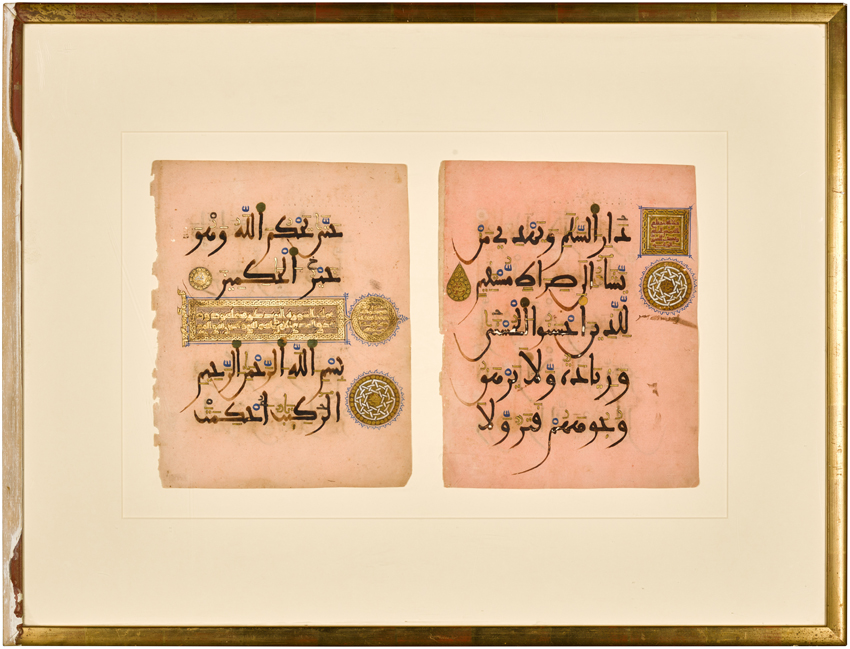 دار السلم ويهدي من
يشا الى صراط مستقيم
للذين احسنوا الحسنى
وزيادة ولا يرهق
وجوههم قتر ولا
حتى يحكم الله وهو
خير الحكمين
بسم الله الرحمن الرحيم
الر كتب احكمت